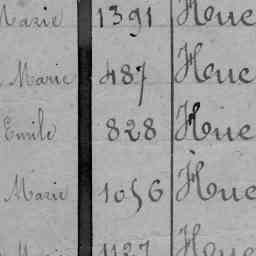 Marie 1391 Houe
Marie 487 Houe
Emile 828 Houe
Marie 1056 Houe
Marie 1127 Houe